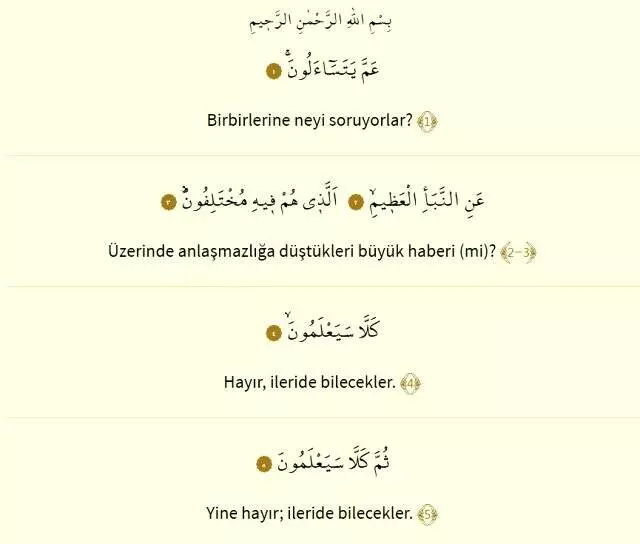 بِسْمِ اللهِ الرَّحْمٰنِ الرَّحٖيمِ
عَمَّ يَتَسَٓاءَلُونَۚ ﴿١﴾
Birbirlerine neyi soruyorlar? ﴾1﴿
عَنِ النَّبَأِ الْعَظٖيمِۙ ﴿٢﴾ اَلَّذٖى هُمْ فٖيهِ مُخْتَلِفُونَۜ ﴿٣﴾
Üzerinde anlaşmazlığa düştükleri büyük haberi (mi)? ﴾2-3﴿
كَلَّا سَيَعْلَمُونَۙ ﴿٤﴾
Hayır, ileride bilecekler. ﴾4﴿
ثُمَّ كَلَّا سَيَعْلَمُونَ ﴿٥﴾
Yine hayır; ileride bilecekler. ﴾5﴿